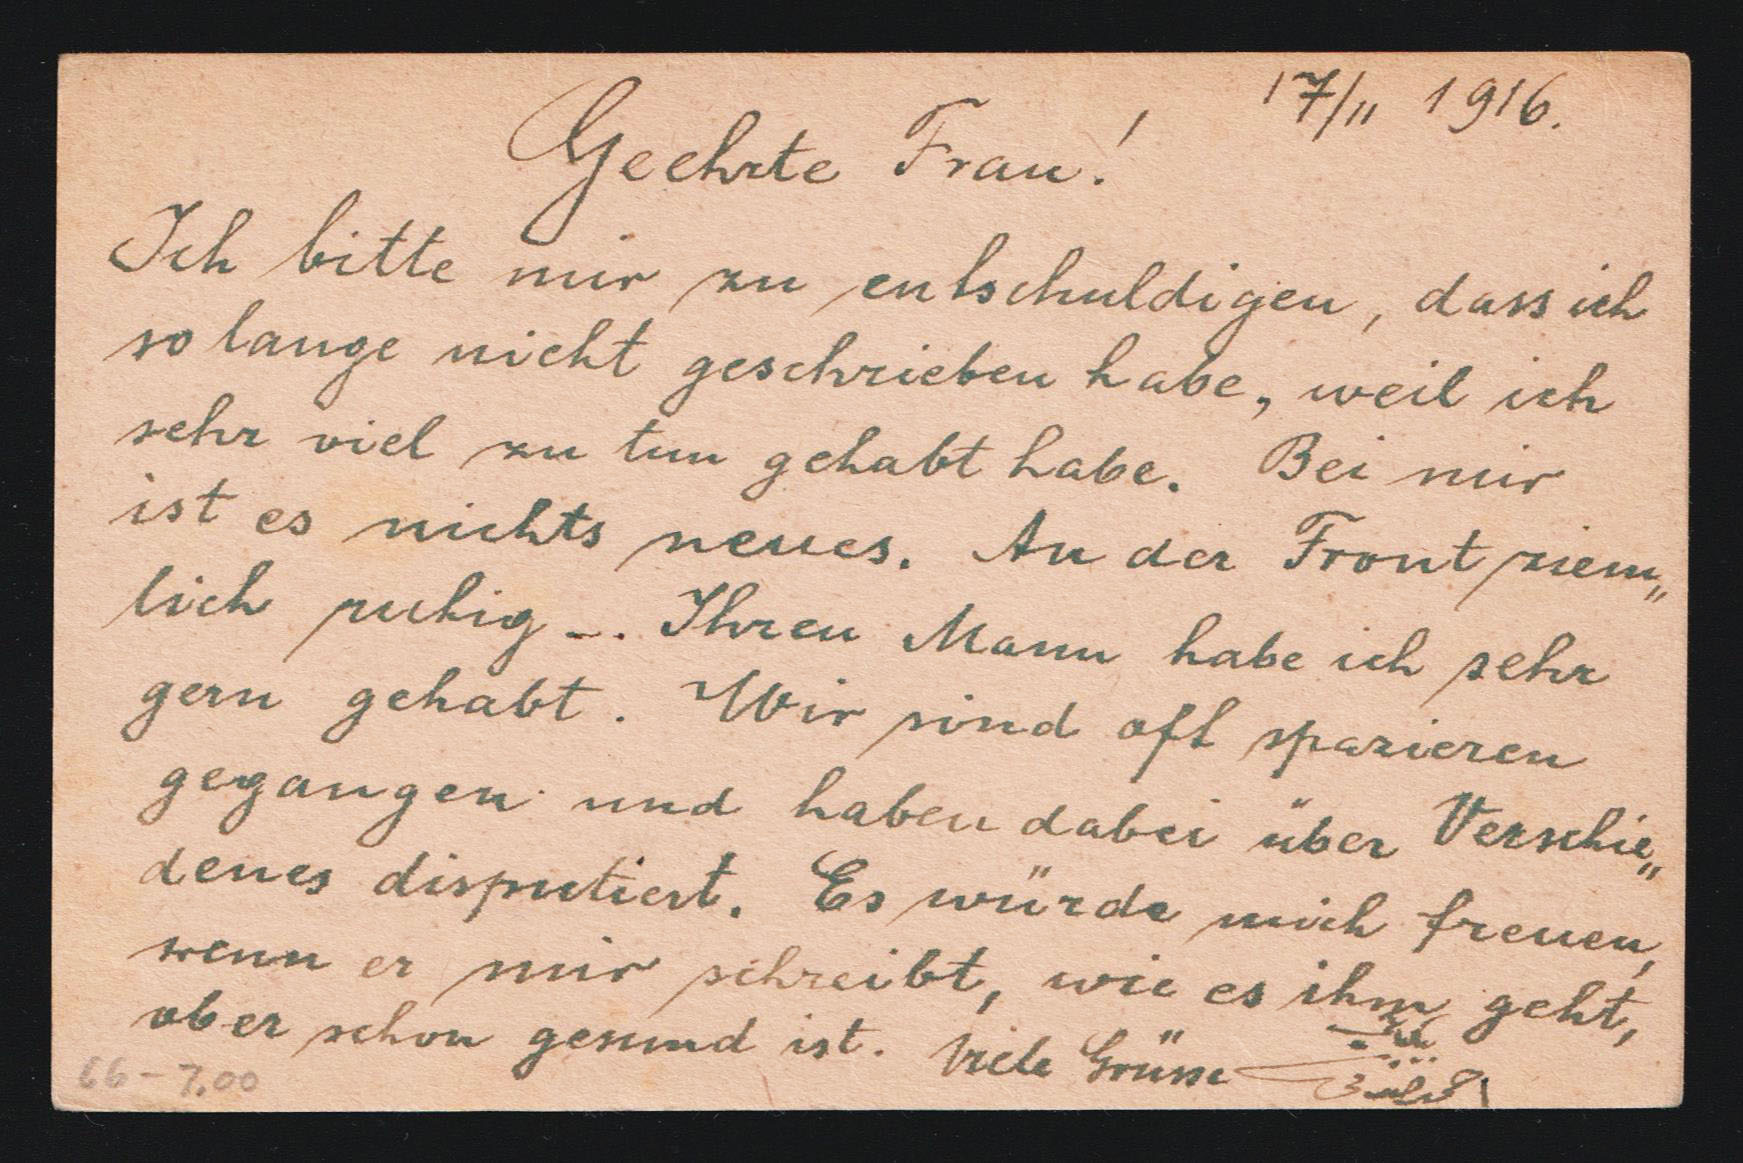 17/II 1916.
Geehrte Frau!
Ich bitte mir zu entschuldigen, dass ich
so lange nicht geschrieben habe, weil ich
sehr viel zu tun gehabt habe. Bei mir
ist es nichts neues. An der Front ziem„
lich ruhig –. Ihren Mann habe ich sehr
gern gehabt. Wir sind oft spazieren
gegangen und haben dabei über Verschie„
denes disputiert. Es würde mich freuen,
wenn er mir schreibt, wie es ihm geht,
ob er schon gesund ist. Viele Grüsse
66-7,00